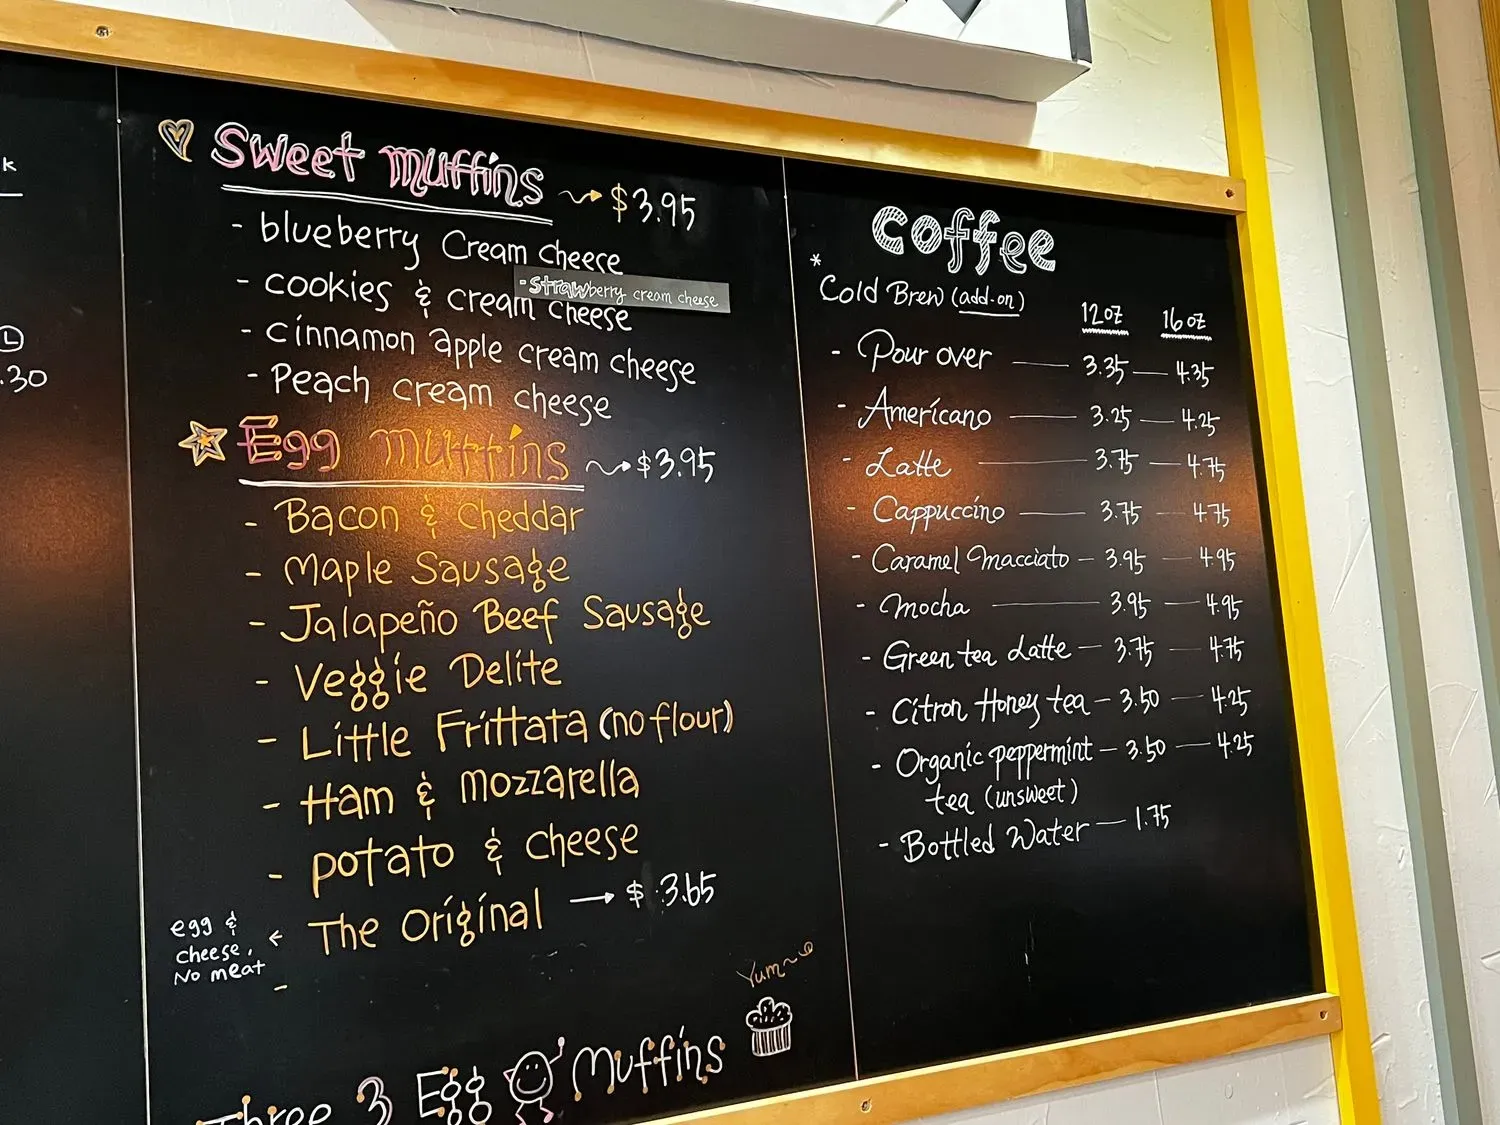 K
L
.30
Sweet muffins $3.95
- blueberry Cream cheese
- strawberry cream cheese
- cookies & cream cheese
- cinnamon apple cream cheese
- Peach cream cheese
Egg muffins $3.95
- Bacon & Cheddar
- Maple Sausage
- Jalapeño Beef Sausage
- Veggie Delite
- Little Frittata (no flour)
- Ham & mozzarella
- potato & cheese
The Original → $3.65
egg &
cheese,
No meat
-
Yum~
Three 3 Egg Muffins
coffee
*
Cold Brew (add-on) 12oz 16oz
- Pour over — 3.35 — 4.35
- Americano — 3.25 — 4.25
- Latte — 3.75 — 4.75
- Cappuccino — 3.75 — 4.75
- Caramel Macciato — 3.95 — 4.95
- Mocha — 3.95 — 4.95
- Green tea Latte — 3.75 — 4.75
- Citron Honey tea — 3.50 — 4.25
- Organic peppermint — 3.50 — 4.25
tea (unsweet)
- Bottled Water — 1.75